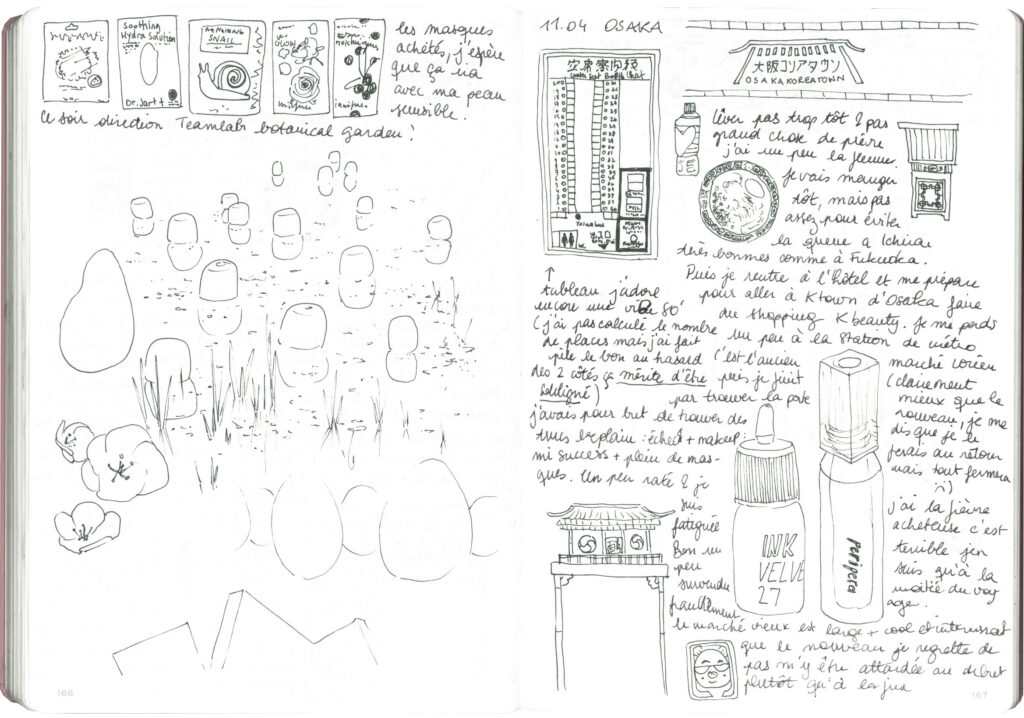 Soothing
Hydra Solution
Dr. Jart +
SNAIL
GLOW
les masques
achetés, j'espère
que ça ira
avec ma peau
sensible.
Ce soir direction Teamlab botanical garden!
166
11.04 OSAKA
空席案内板
大阪コリアタウン
OSAKA KOREATOWN
lever pas trop tôt & pas
grand chose de prévu
j'ai un peu la flemme.
Je vais manger
tôt, mais pas
assez pour éviter
la queue a Ichiran
très bonnes comme à Fukuoka.
Puis je rentre à l'hôtel et me prépare
pour aller à Ktown d'Osaka faire
du shopping Kbeauty. Je me perds
un peu à la station de métro
↑
tableau j'adore
encore une vibe 80'
(j'ai pas calculé le nombre
de places mais j'ai fait
pile le bon au hasard
des 2 côtés ça mérite d'être
souligné)
C'est l'ancien
marché coréen
(clairement
mieux que le
nouveau, je me
dis que je le
ferais au retour
mais tout fermera
:'))
puis je finit
par trouver la porte
j'avais pour but de trouver des
trucs : échec + makeup
mi success + plein de mas-
ques. Un peu raté & je
suis
fatiguée
Bon un
peu
survendu
franchement
INK
VELVE
27
peripera
j'ai la fièvre
acheteuse c'est
terrible j'en
suis qu'à la
moitié du voy
age.
le marché vieux est large + cool et intéressant
que le nouveau je regrette de
pas m'y être attardée au début
plutôt qu'à la fin
167